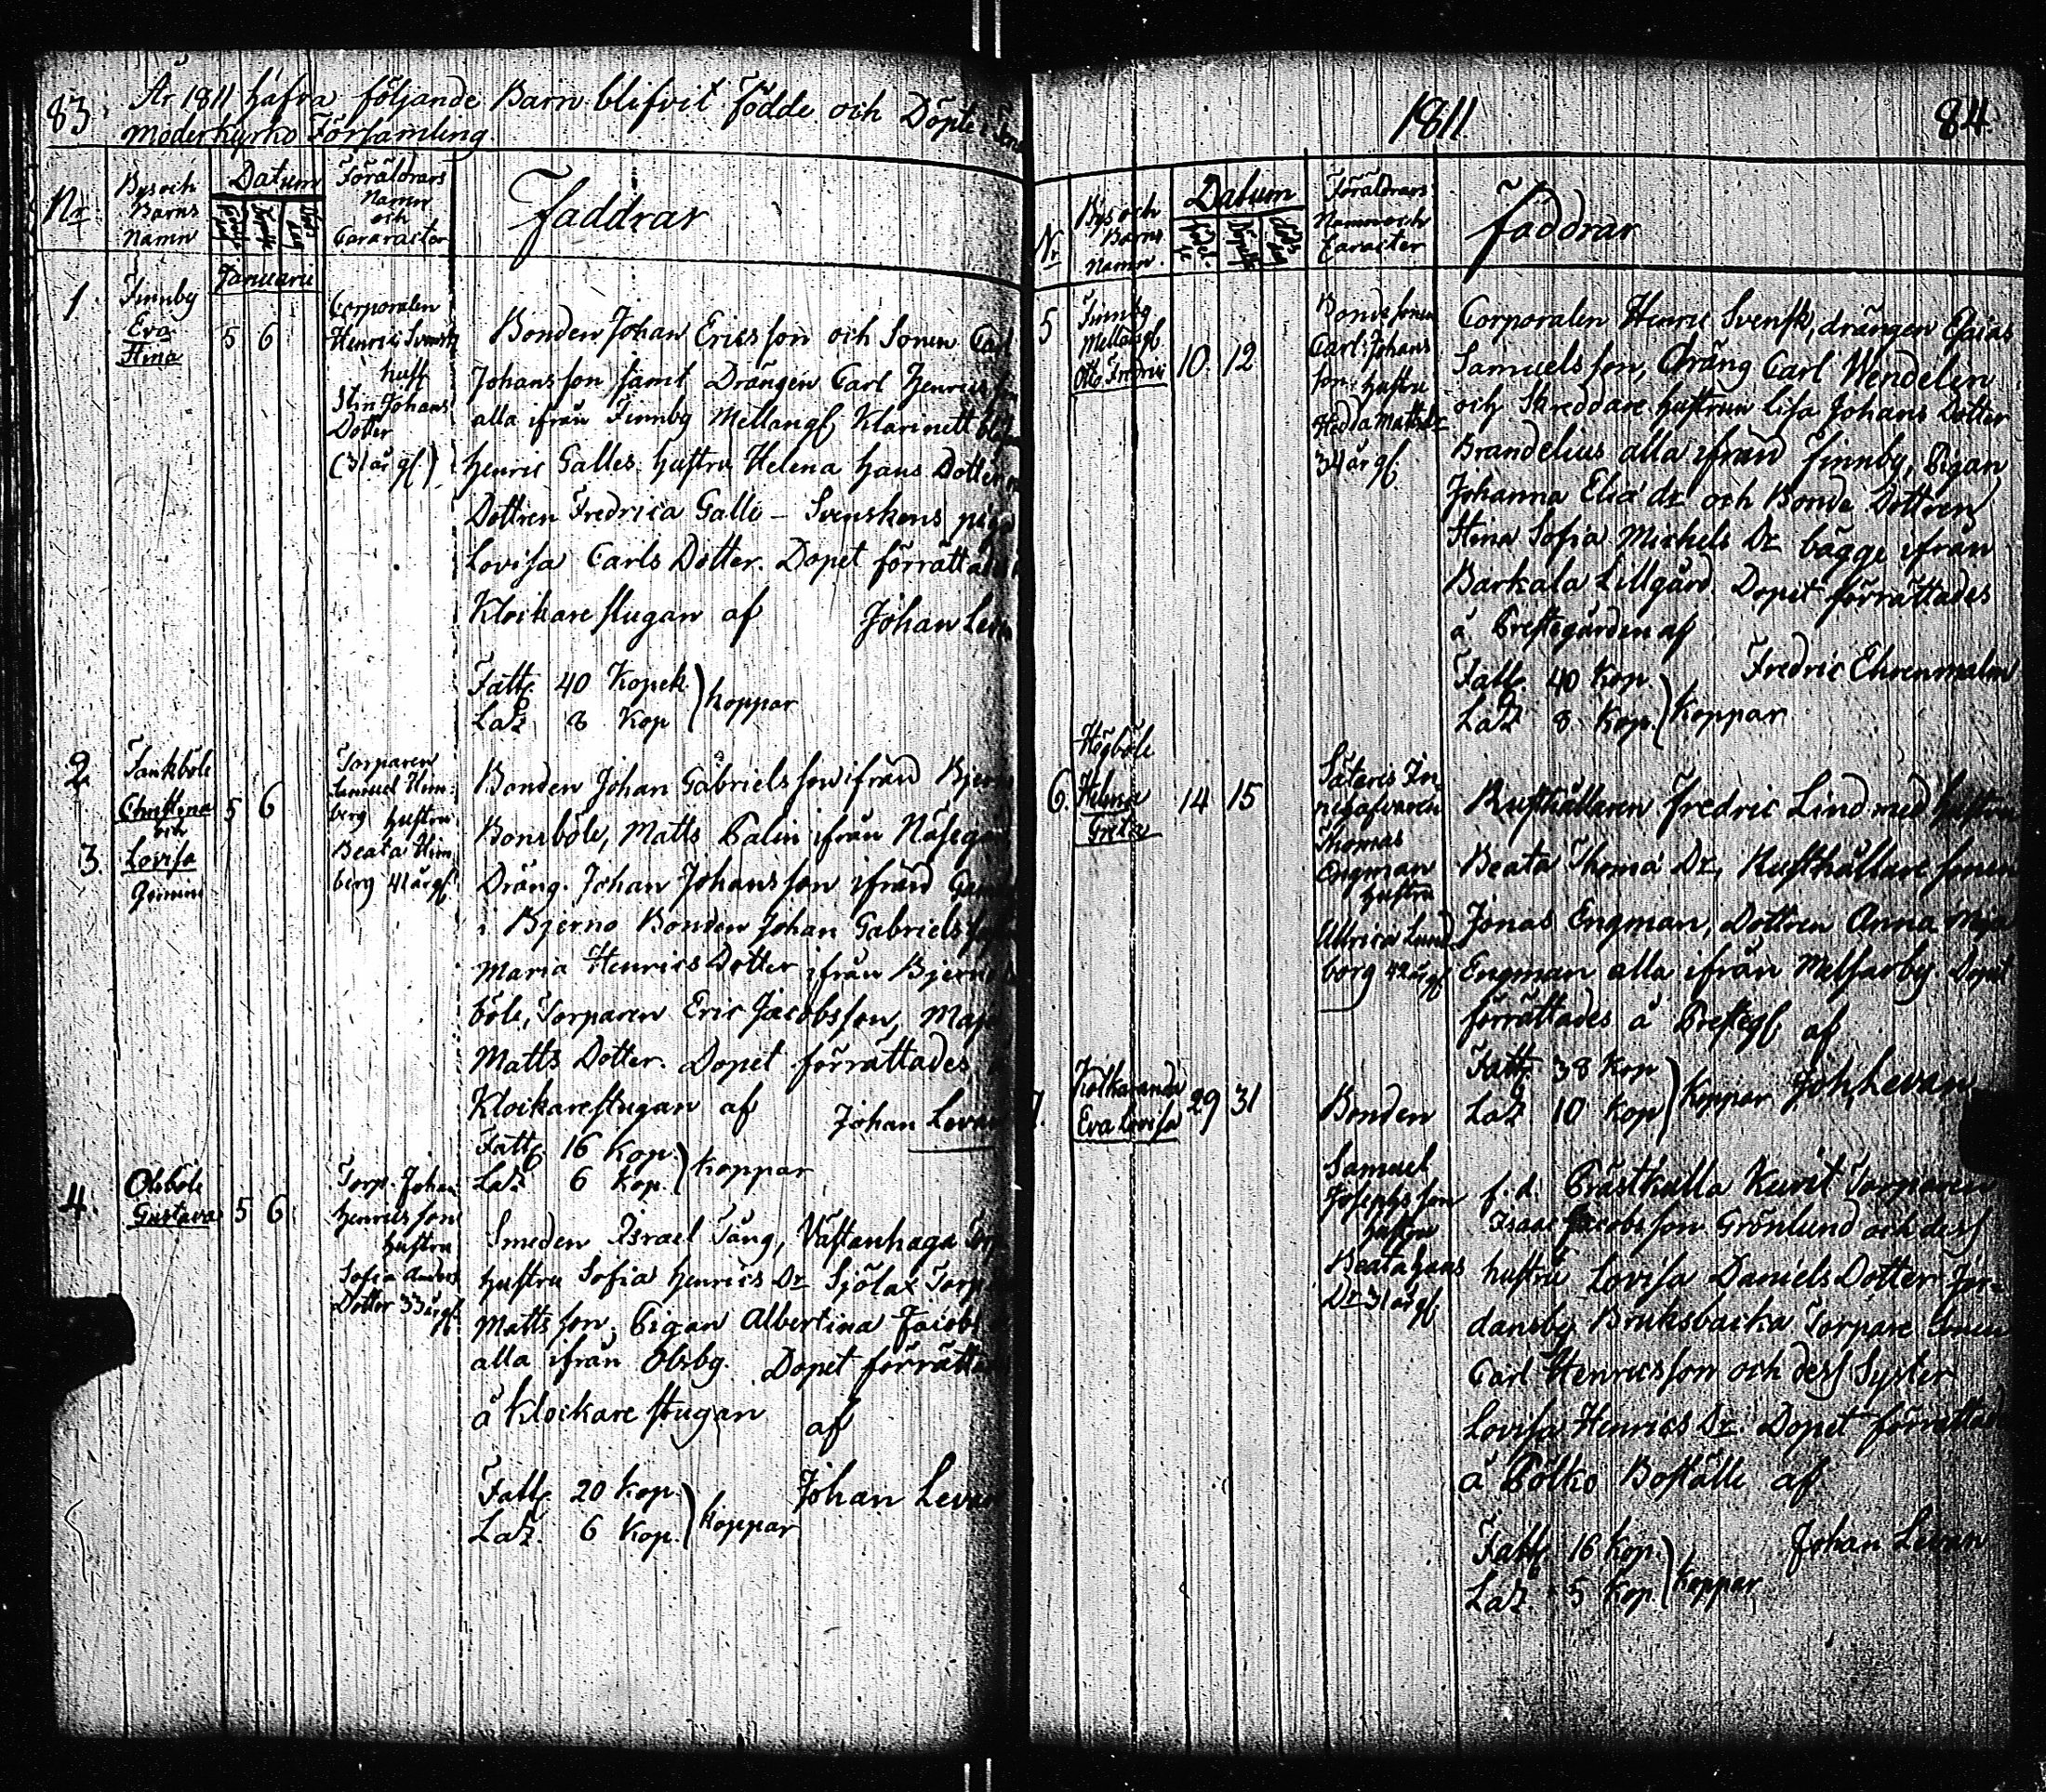 83.
År 1811 hafva följande Barn blifvit Födde och Döpte i
Moderkyrko Församling
Nr
Bys och
Barns
Namn
Datum
Föräldrars
Namn
och
Caracter
Faddrar
Januarii
1.
Finnby
Eva
Stina
5 6
Corporalen
Henric Svensk
hust
Stin Johans
Dotter
(31 år gl)
Bonden Johan Ericsson och Sonen Carl
Johansson samt Drängen Carl Henrics
alla ifrån Finnby Mellang. Klarinett
Henric Galles hustru Helena Hans Dotter
Dottren Fredrica Galle - Svenskens piga
Lovisa Carls Dotter. Dopet förrättades
Klockare stugan af Johan Levan
Fattg. 40 Kopek.
Laz. 8 Kop
koppar
2.
Tankböle
Christina
och
3.
Lovisa
Gemini
5 6
Torparen
Samuel Him-
berg hustru
Beata Him
berg 41 år gl.
Bonden Johan Gabrielsson ifrån Bjerno
Bonsböle, Matts Palin ifrån Näsegård
Dräng. Johan Johansson ifrån
i Bjerno Bonden Johan Gabriels
Maria Henrics Dotter ifrån Bjerno
böle, Torparen Eric Jacobsson, Maja
Matts Dotter. Dopet förrättades
Klockarestugan af Johan Levan
Fattg. 16 Kop.
Laz. 6 Kop.
koppar
4.
Olsböle
Gustava
5 6
Torp. Johan
Henricsson
hustru
Sofia Anders
Dotter 33 år gl.
Smeden Israel Tång, Västanhaga Torp
hustru Sofia Henrics Dr Sjölax Torp
Mattsson, Pigan Albertina Jacobs
alla ifrån Olsby. Dopet förrätta
å Klockare stugan af
Fattg. 20 Kop.
Laz. 6 Kop.
koppar
Johan Levan
1811
84.
Nr
Bys och
Barns
Namn
Datum
Föräldrars
Namn och
Caracter
Faddrar
5
Finnby
Mellang.
Otto Fredric
10. 12
Bondesonen
Carl Johans
son hustru
Hedda Matts Dr
34 år gl.
Corporalen Henric Svensk, drängen Esaias
Samuelsson, Dräng Carl Wendelin
och Skreddare hustrun Lisa Johans Dotter
Brandelius alla ifrån Finnby, Pigan
Johanna Elia dr och Bonde Dottren
Stina Sofia Michels Dr bägge ifrån
Barkala Lillgård. Dopet förrättades
å Prestegården af
Fredric Ehrenmalm
Fattg. 40 Kop.
Laz. 8. Kop.
Koppar
Högböle
6.
Helena
Greta
14 15
Säteris In-
nehafvaren
Thomas
Engman
hustru
Ulrica Lund
borg 42 år gl
Rusthållaren Fredric Lind med hustru
Beata Thomæ Dr, Rusthållare sonen
Jonas Engman, Dottren Anna Maja
Engman alla ifrån Melsarby Dopet
förrättades å Presteg. af
Fattg. 38 Kop
Laz. 10 Kop
Koppar
Joh. Levan
7.
Kotkaranda
Eva Lovisa
29 31
Bonden
Samuel
Josephsson
hustru
Beata Hans
Dr 31 år gl.
f. d. Prästkulla Kurit Torparen
Isaac Jacobsson Grönlund och dess
hustru Lovisa Daniels Dotter Jor-
dansby Bruksbacka Torpare Sonen
Carl Henricsson och dess Syster
Lovisa Henrics Dr. Dopet förrättad
å Pölkö Boställe af
Johan Levan
Fattg. 16 Kop.
Laz. 5 Kop.
Koppar